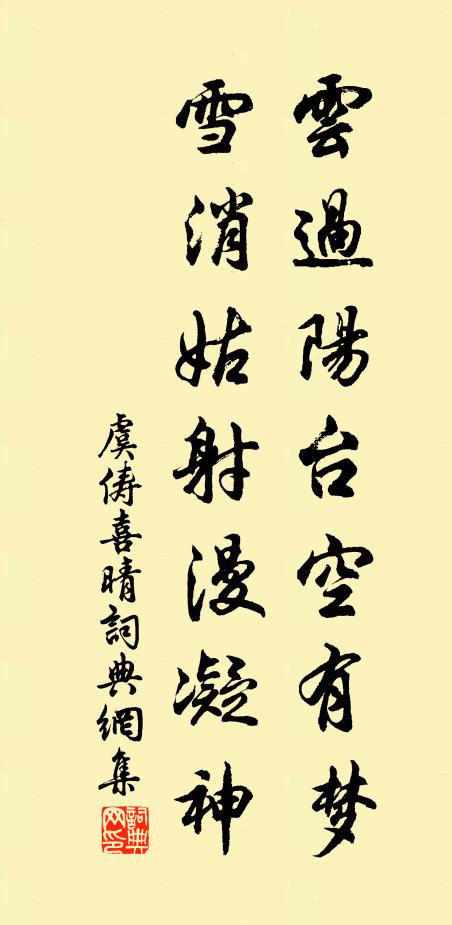 雲過陽台空有梦
雪消姑射漫凝神
虞俦喜晴詞典網集
詞典网印